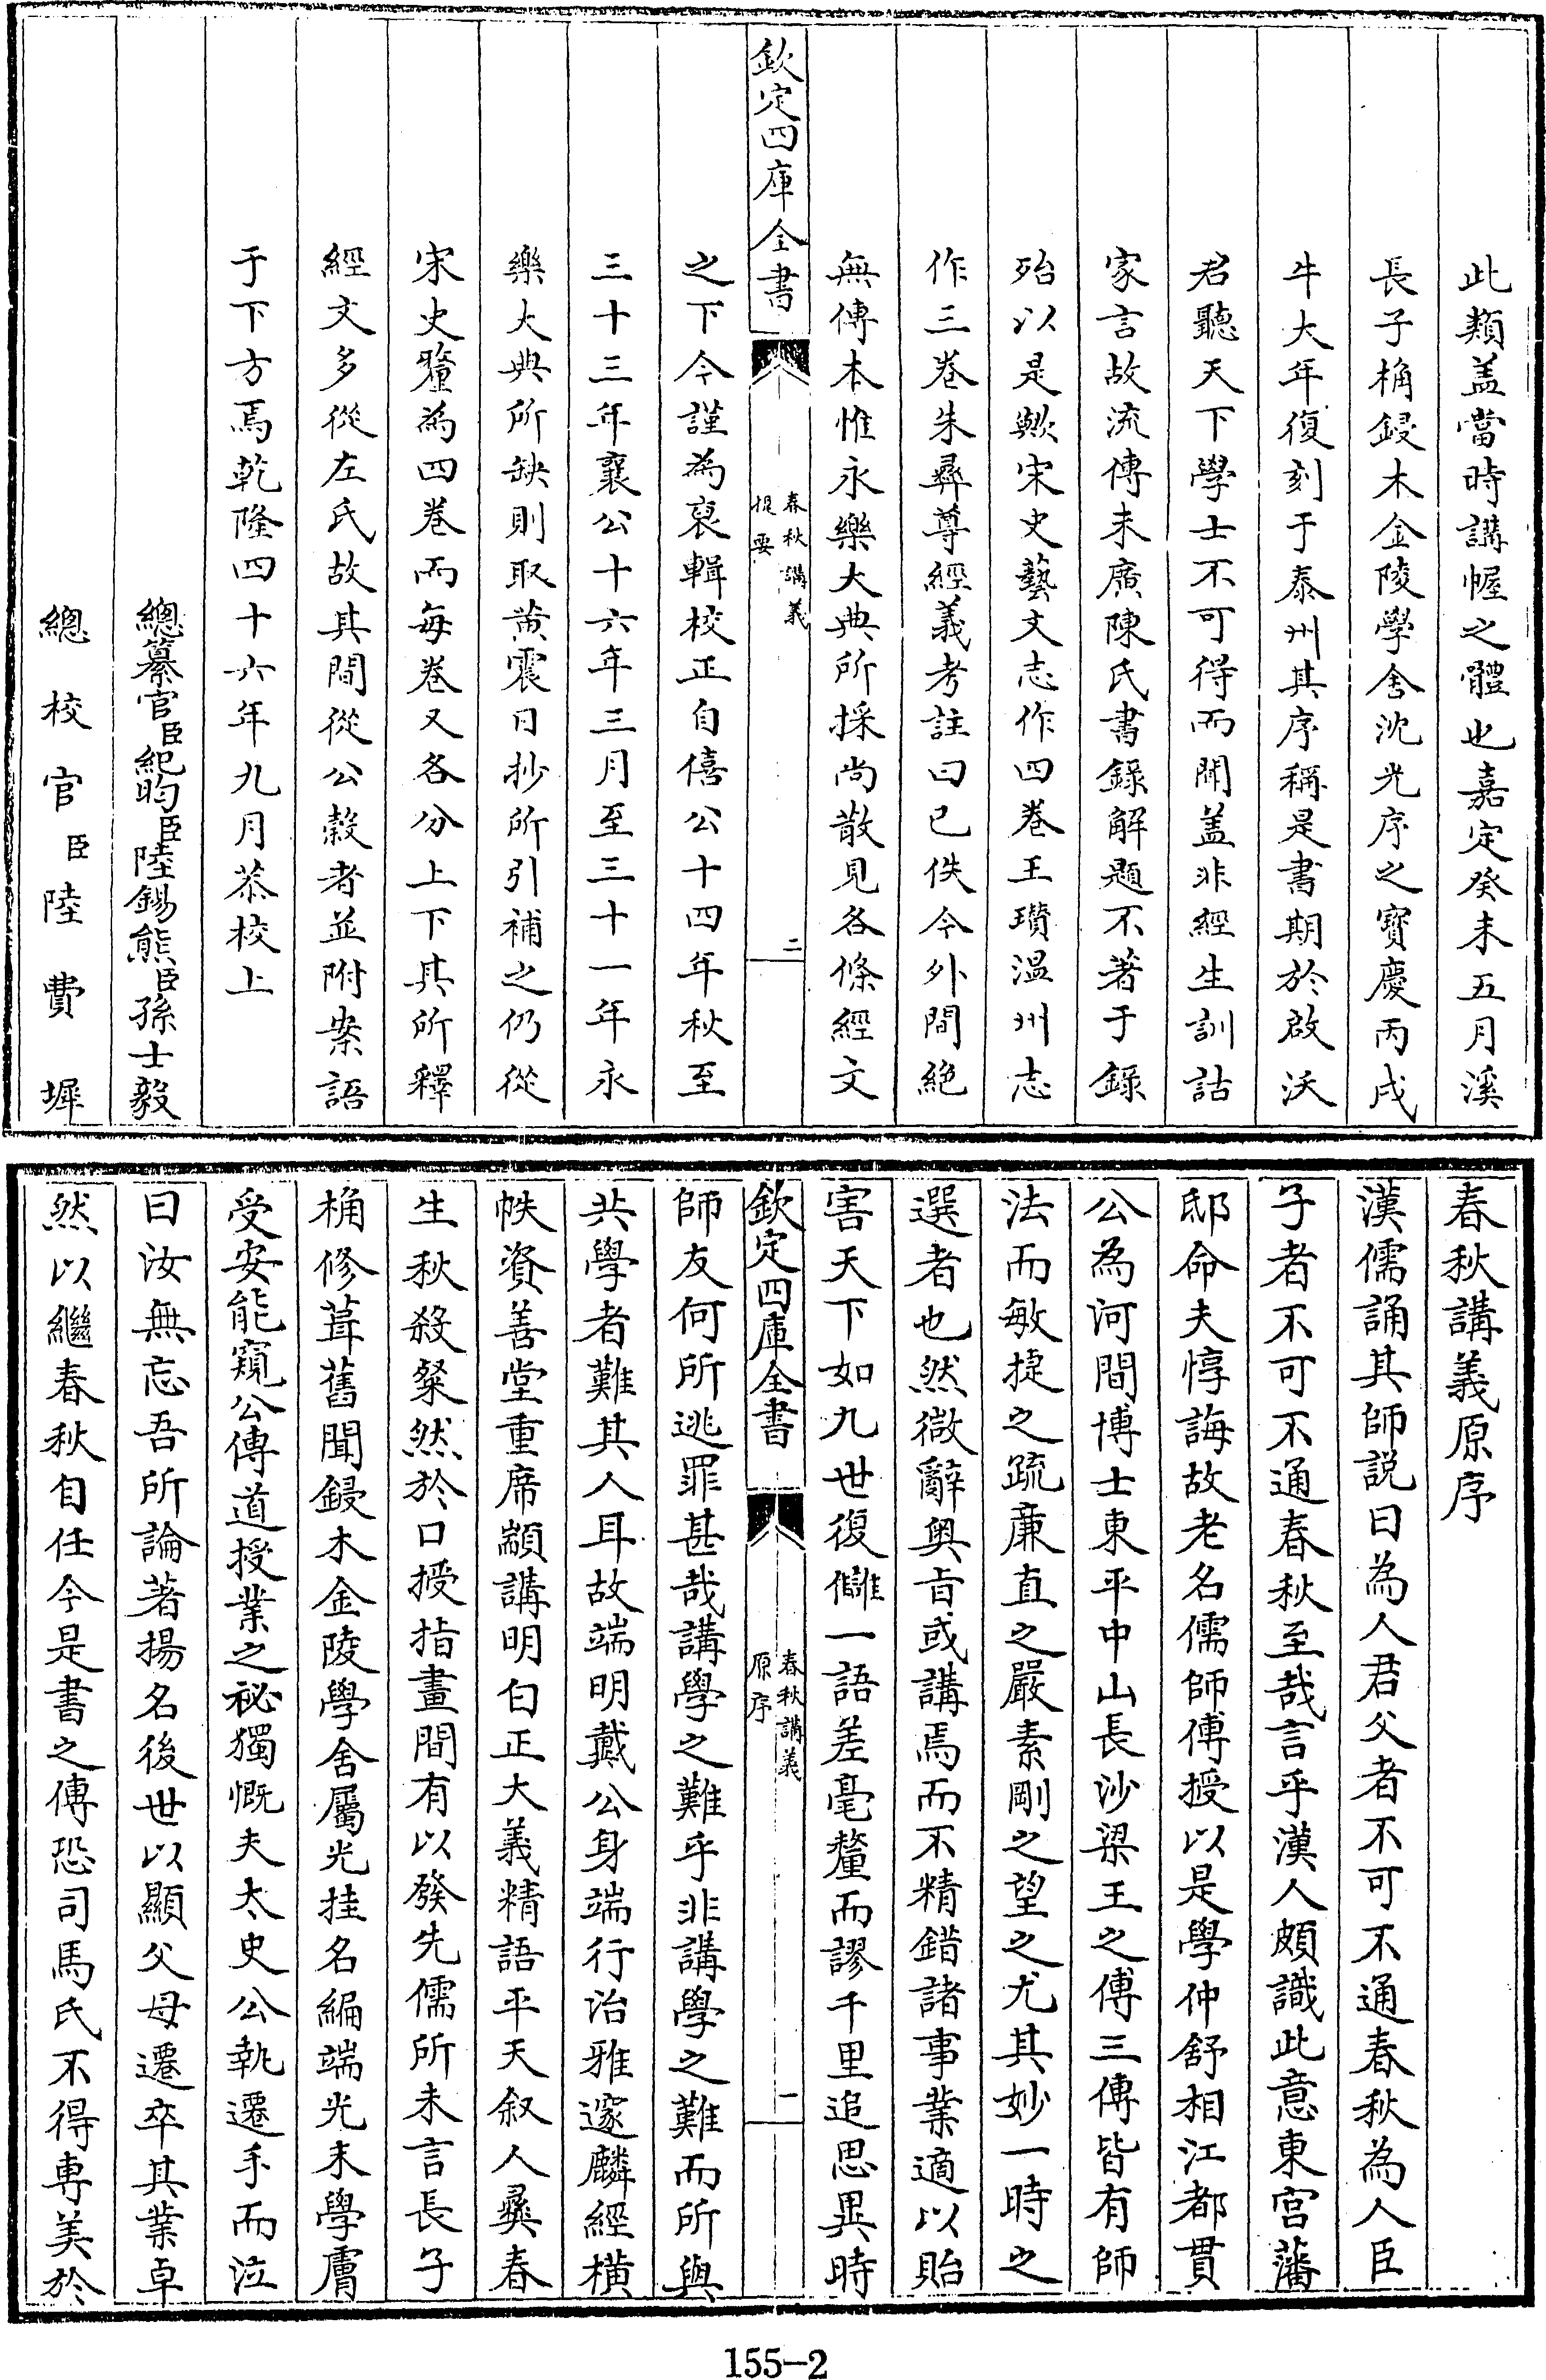 此類盖當時講幄之體也嘉定癸未五月溪
長子桷鋟木金陵學舍沈光序之寶慶丙戌
牛大年復刻于泰州其序稱是書期於啟沃
君聽天下學士不可得而聞盖非經生訓詁
家言故流傳未廣陳氏書錄解題不著于錄
殆以是歟宋史藝文志作四卷王瓚温州志
作三卷朱彝尊經義考註曰已佚今外間絶
無傳本惟永樂大典所採尚散見各條經文
欽定四庫全書
春秋講義
提要
二
之下今謹為裒輯校正自僖公十四年秋至
三十三年襄公十六年三月至三十一年永
樂大典所缺則取黄震日抄所引補之仍從
宋史釐為四卷而每卷又各分上下其所釋
經文多從左氏故其間從公穀者並附案語
于下方焉乾隆四十六年九月恭校上
總纂官臣紀昀臣陸錫熊臣孫士毅
總校官臣陸費墀
春秋講義原序
漢儒誦其師説曰為人君父者不可不通春秋為人臣
子者不可不通春秋至哉言乎漢人頗識此意東宫藩
邸命夫惇誨故老名儒師傅授以是學仲舒相江都貫
公為河間博士東平中山長沙梁王之傅三傳皆有師
法而敏捷之疏廉直之嚴素剛之望之尤其妙一時之
選者也然微辭奥㫖或講焉而不精錯諸事業適以貽
害天下如九世復讎一語差毫釐而謬千里追思異時
欽定四庫全書
春秋講義
原序
一
師友何所逃罪甚哉講學之難乎非講學之難而所與
共學者難其人耳故端明戴公身端行治雅邃麟經横
帙資善堂重席顓講明白正大義精語平天叙人彛春
生秋殺粲然於口授指畫間有以發先儒所未言長子
桷修葺舊聞鋟木金陵學舍屬光挂名編端光末學膚
受安能窺公傳道授業之祕獨慨夫太史公執遷手而泣
曰汝無忘吾所論著揚名後世以顯父母遷卒其業卓
然以繼春秋自任今是書之傳恐司馬氏不得専美於
155-2